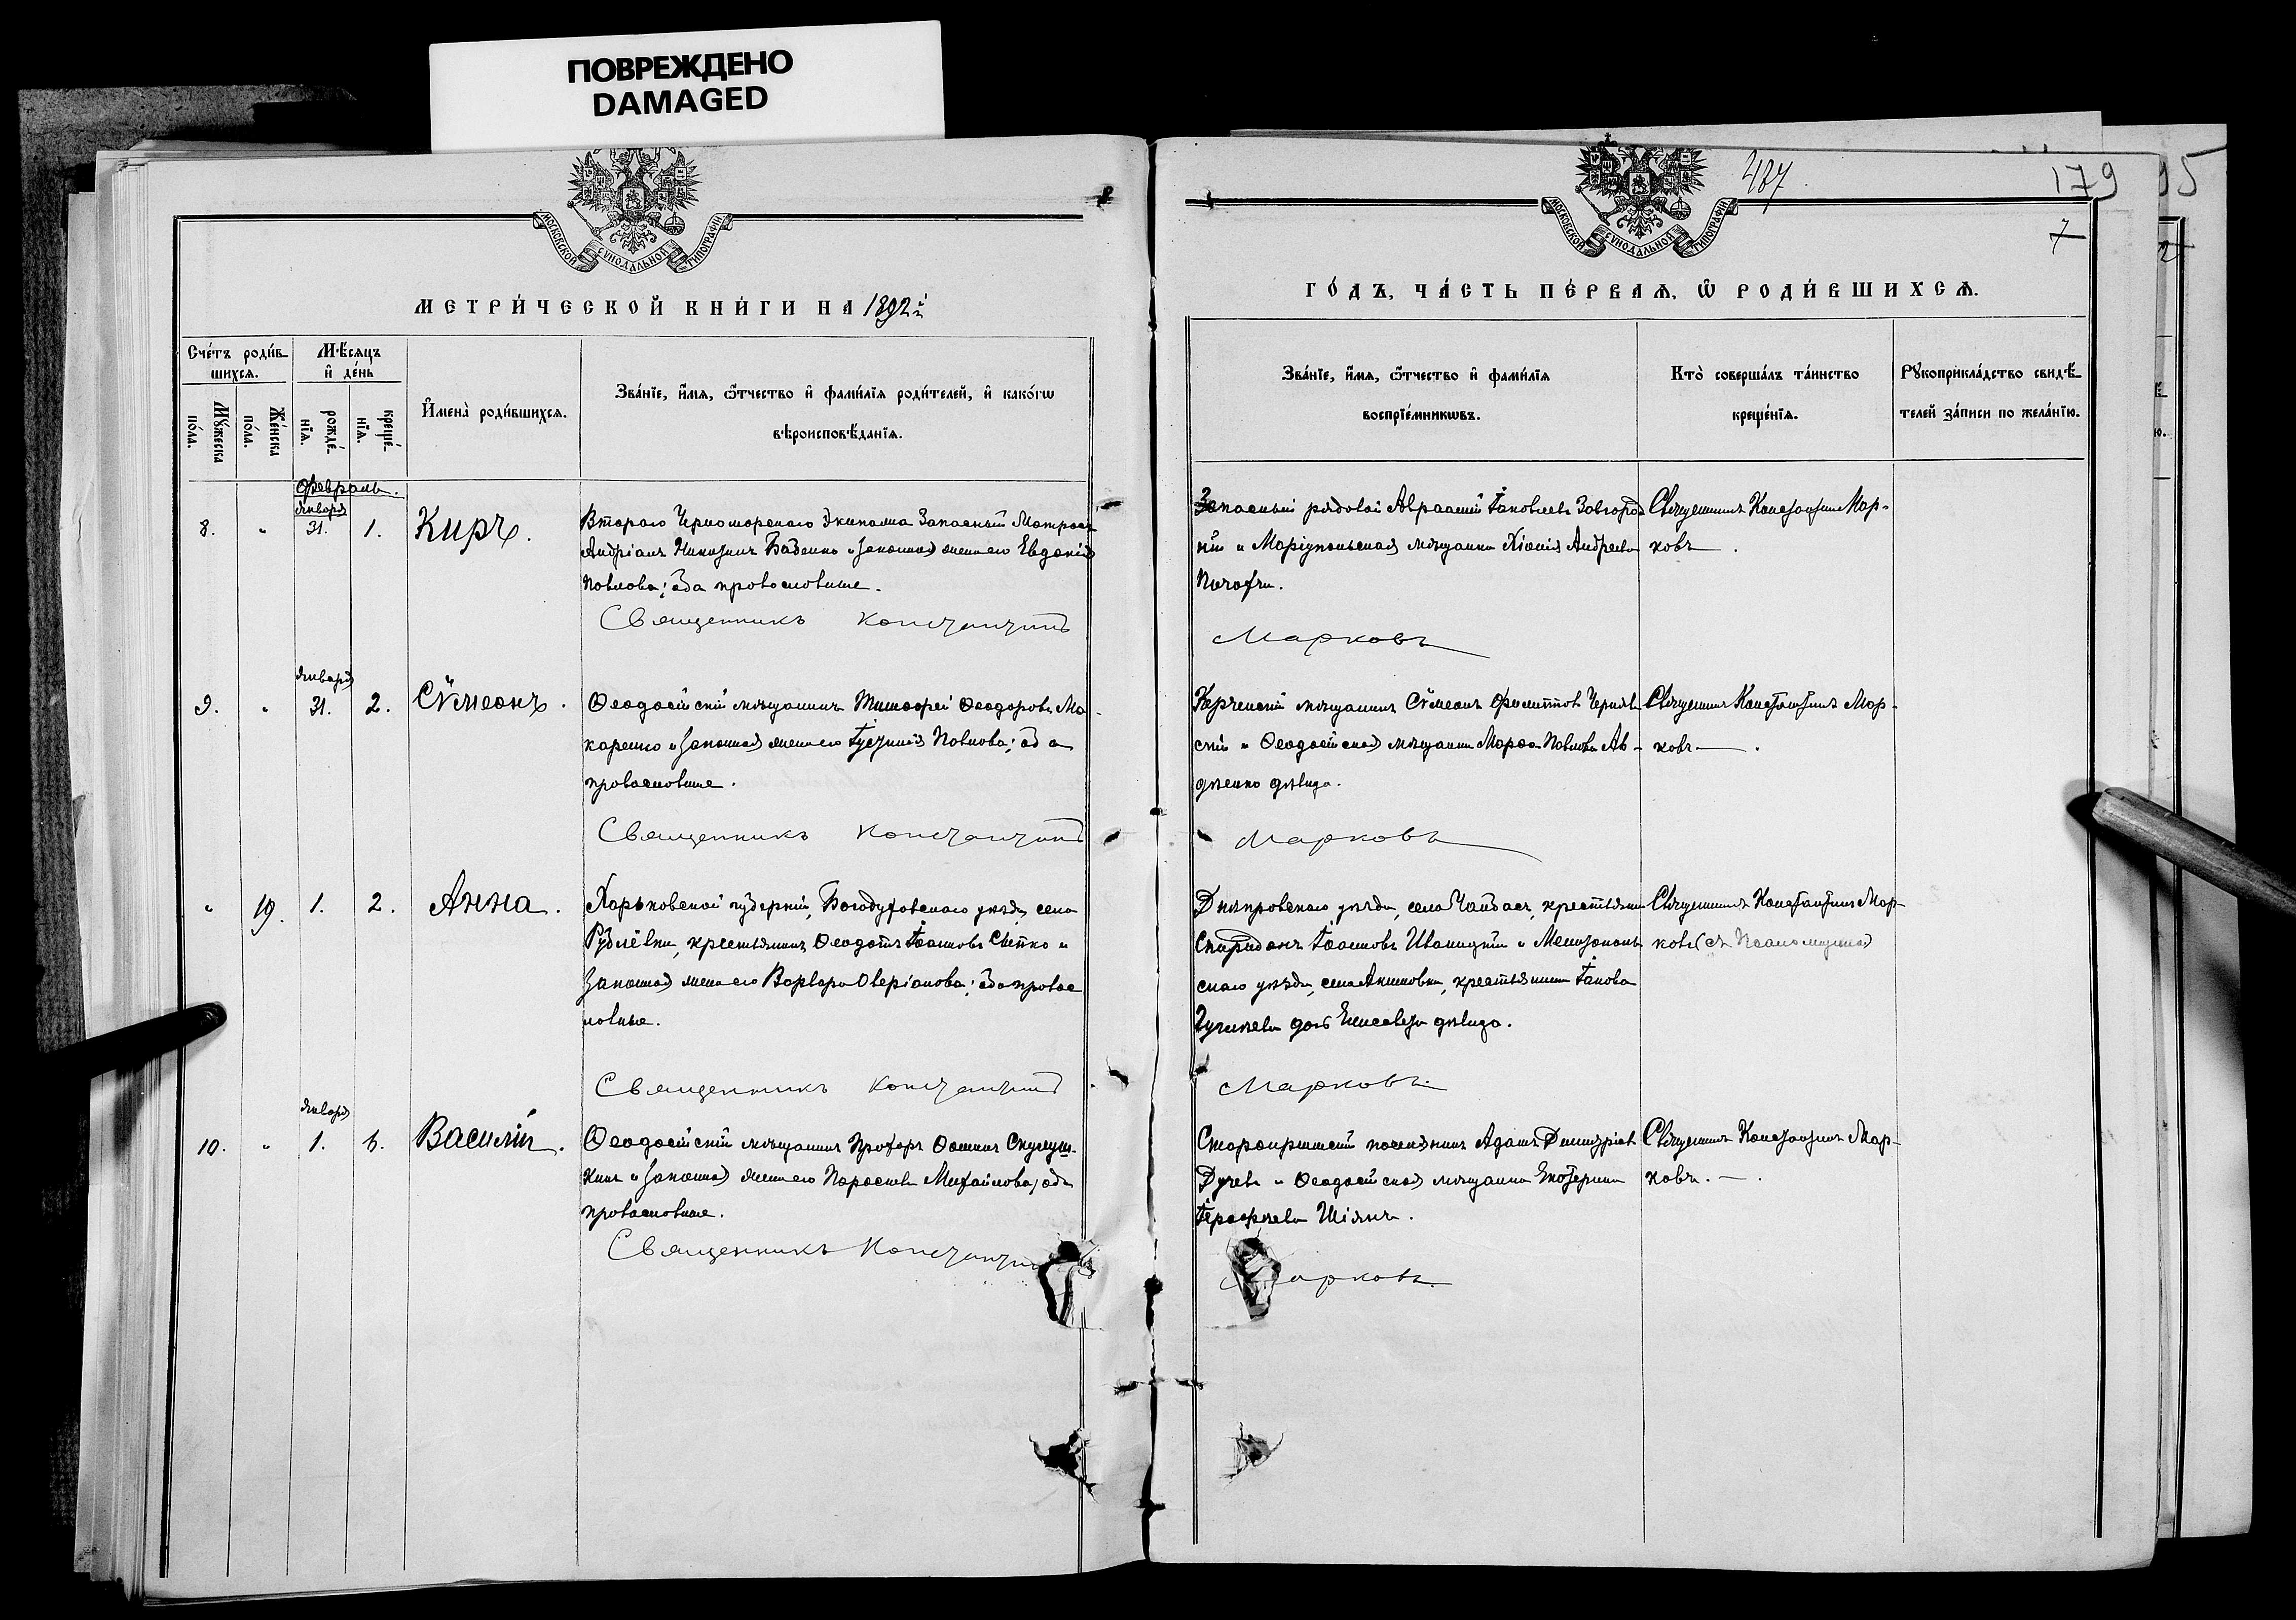 ПОВРЕЖДЕНО
DAMAGED
МОСКОВСКОЙ СѴНОДАЛЬНОЙ ТИПОГРАФІИ
МЕТРИ́ЧЕСКОЙ КНИ́ГИ НА 1892й
Сче́тъ роди́в-
шихся.
Мѣ́сяцъ
и҆ де́нь
Мꙋ́жеска
по́ла.
Же́нска
по́ла.
рожде́-
нїя.
креще́-
нїя.
И҆мена̀ роди́вшихся.
Зва́нїе, и҆́мя, ѻ҆́тчество и҆ фами́лїя роди́телей, и҆ како́гѡ
вѣроисповѣ́данїя.
Февраль.
8. " Января 31. 1. Киръ.
Втораго Черноморскаго Экипажа Запасный Матросъ
Андріанъ Никитинъ Баденко и законная жена его Евдокія
Павлова; оба православные.
Священникъ Константинъ
9. " Января 31. 2. Сѵмеонъ.
Ѳеодосійскій мѣщанинъ Тимоѳей Ѳеодоровъ Ма-
каренко и законная жена его Іустинія Павлова; оба
православные.
Священникъ Константинъ
" 19. 1. 2. Анна.
Харьковской губерніи, Богодуховскаго уѣзда, села
Рублёвки, крестьянинъ Ѳеодотъ Іоанновъ Свѣтко и
законная жена его Варвара Оверіанова; оба правос
лавные.
Священникъ Константинъ
10. " Января 1. 6. Василій.
Ѳеодосійскій мѣщанинъ Прохоръ Ѳоминъ
и законная жена его Параскева Михайлова; оба
православные.
Священникъ Константинъ
МОСКОВСКОЙ СѴНОДАЛЬНОЙ ТИПОГРАФІИ
487.
179
95
7
ГО́ДЪ, ЧА́СТЬ ПЕ́РВАЯ, Ѡ҆ РОДИ́ВШИХСЯ.
Зва́нїе, и҆́мя, ѻ҆́тчество и҆ фами́лїя
воспрїе́мникѡвъ.
Кто̀ соверша́лъ та́инство
креще́нїя.
Рꙋкоприкла́дство свидѣ́-
телей за́писи по жела́нїю.
Запасный рядовой Авраамій Іаковлевъ Завгород
ній и Маріупольская мѣщанка Хіонія Андреева
Священникъ Константинъ Мар-
ковъ.
Марковъ
Керченскій мѣщанинъ Сѵмеонъ Черняв
скій и Ѳеодосійская мѣщанка Марѳа Павлова Ав-
дѣенко дѣвица.
Священникъ Константинъ Мар-
ковъ.
Марковъ
Днѣпровскаго уѣзда, села Чалбасъ, крестьянинъ
Спиридонъ Іоанновъ Иваницкій и Мелитополь
скаго уѣзда, села Акимовки, крестьянина Іакова
дочь Елисавета дѣвица.
Священникъ Константинъ Мар-
ковъ (съ
Марковъ.
Старокрымскій поселянинъ Адамъ Димитріевъ
Дучевъ и Ѳеодосійская мѣщанка Екатерина
Іероѳеева Шіянъ.
Священникъ Константинъ Мар-
ковъ.
Марковъ.